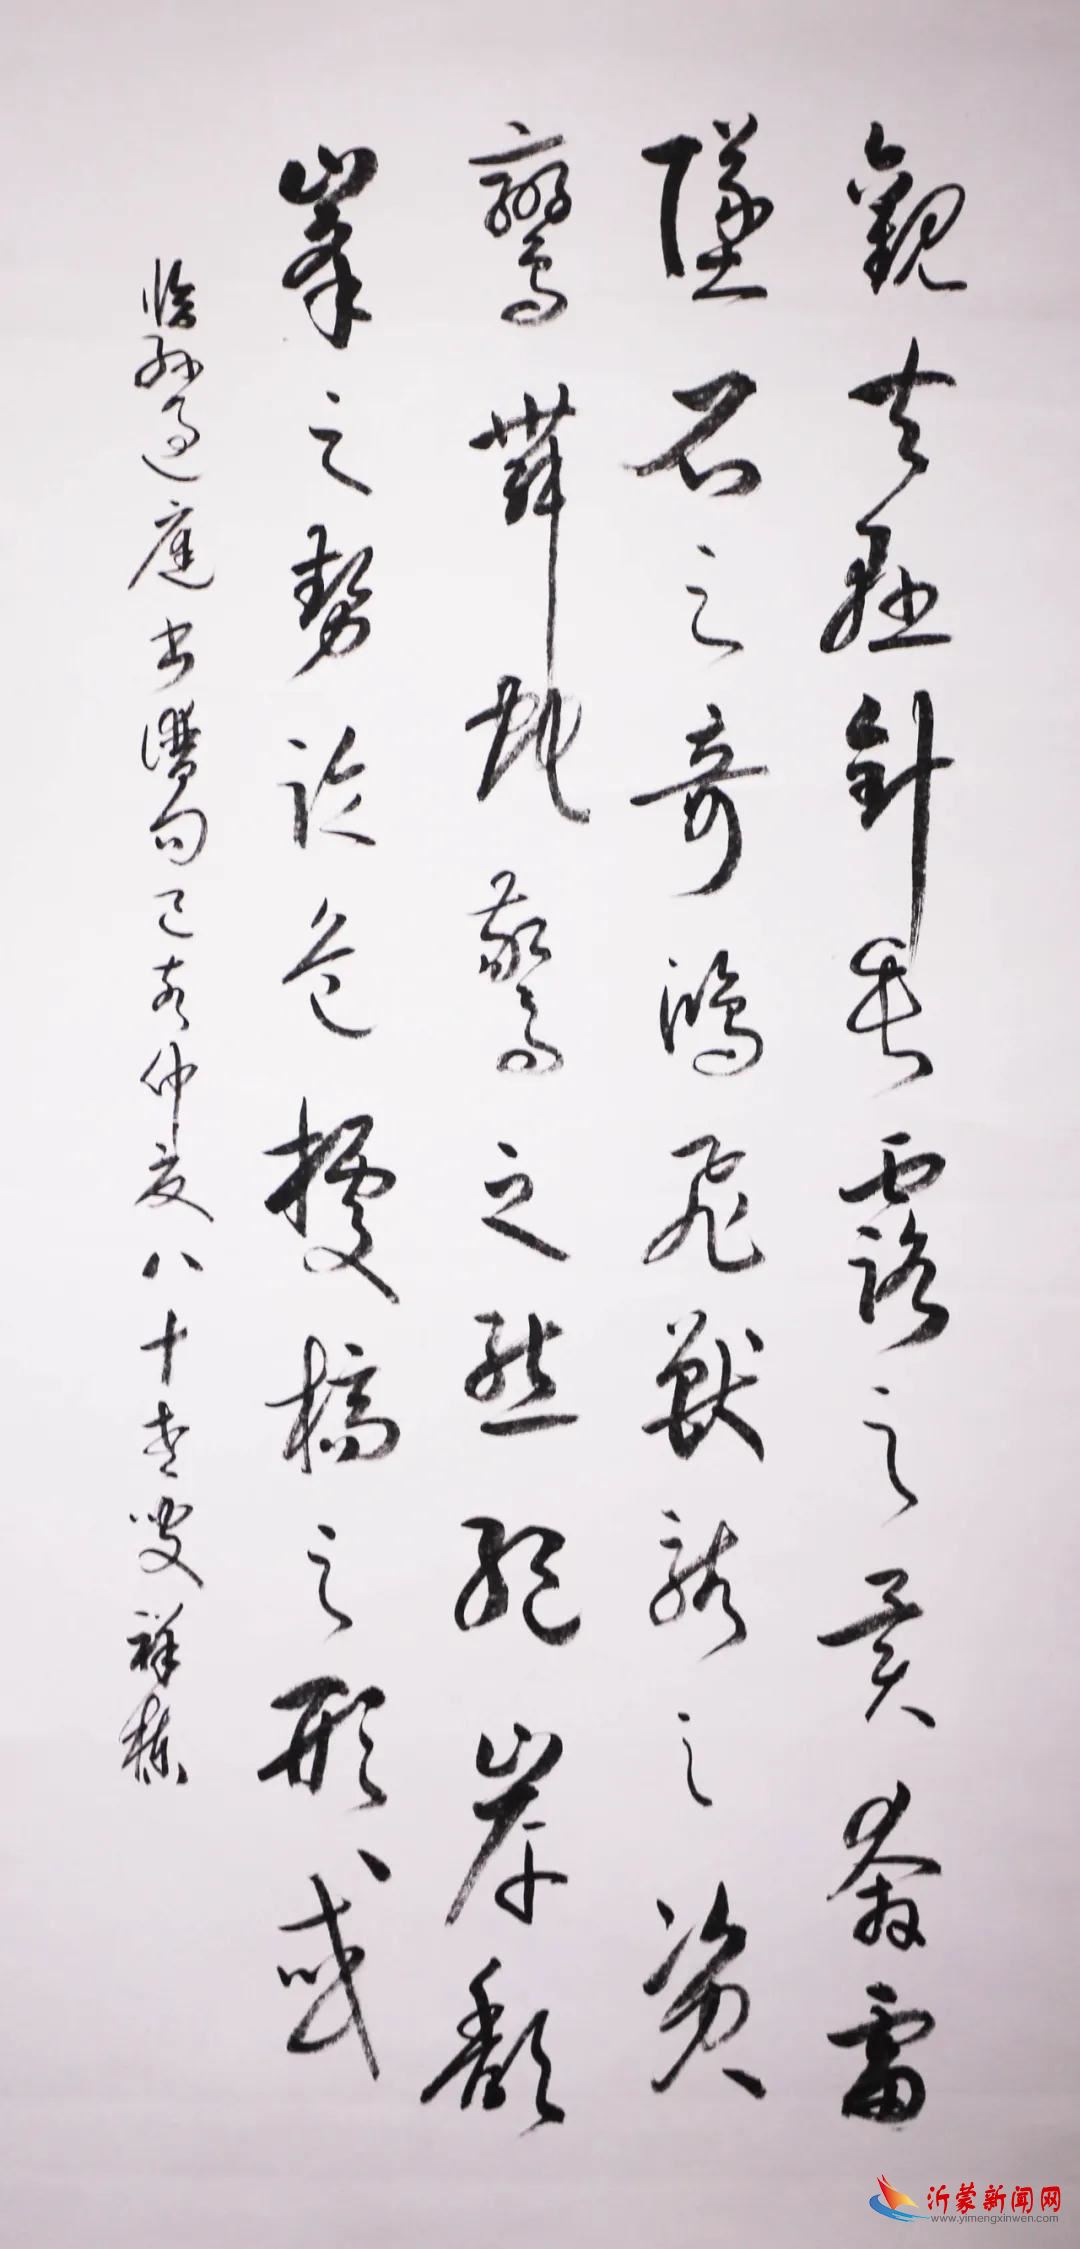 觀夫懸針垂露之異奔雷
墜石之奇鴻飛獸駭之資
鸞舞蛇驚之態絕岸頹
峯之勢臨危據槁之形或
臨孫過庭書譜句己亥仲夏八十老叟祥棟
沂蒙新闻网
www.yimengxinwen.com